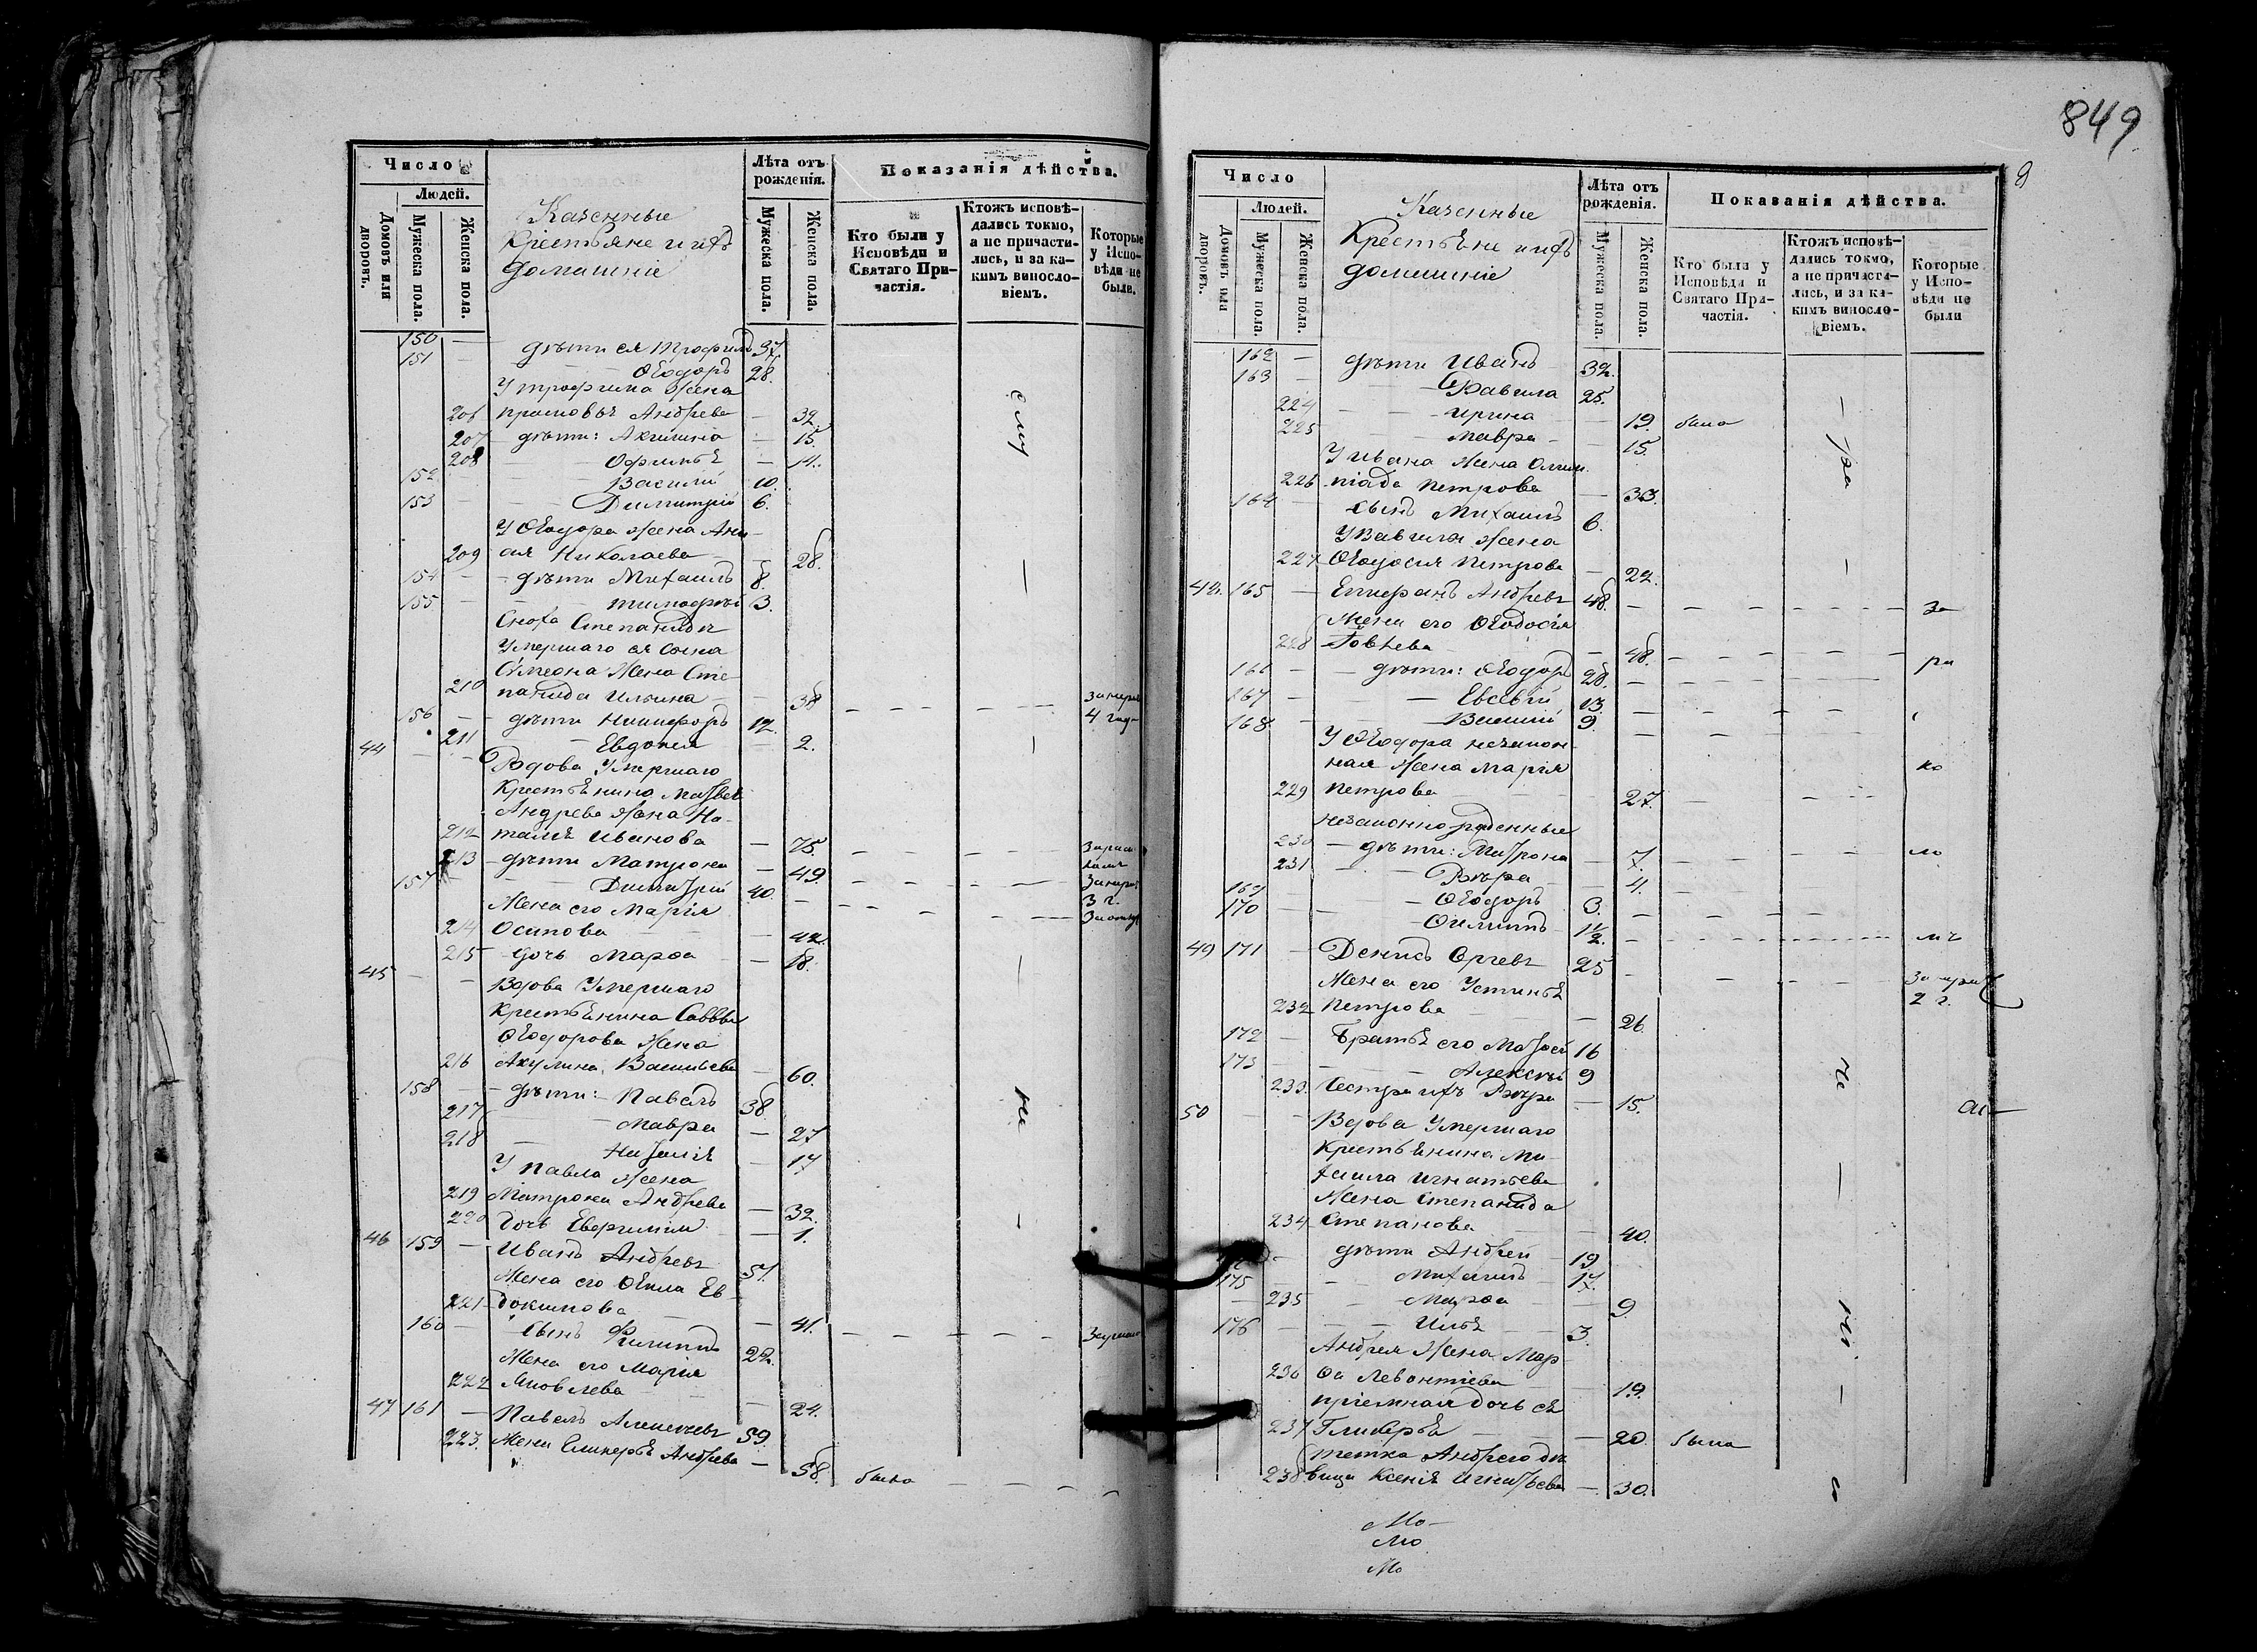 849
Число
Людей.
Домовъ или дворовъ.
Мужеска пола.
Женска пола.
Казенные
Крестьяне и ихъ
домашніе
Лѣта отъ рожденія.
Мужеска пола.
Женска пола.
Показанія дѣйства.
Кто были у Исповѣди и Святаго Причастія.
Ктожъ исповѣдались токмо, а не причастились, и за какимъ винословіемъ.
Которые у Исповѣди не были.
150 — дѣти ея Трофимъ 37
151 — Ѳеодоръ 28.
У Трофима жена
206 Андрева — 32
207 дѣти: Акилина — 15.
208 — 14.
152 Василій 10.
153 Димитрій 6.
У Ѳеодора жена Ани-
209 сія Николаева — 28.
154 — дѣти Михаилъ 8
155 — Тимофѣй 3.
Сноха Степанида
Умершаго ея сына
Симеона жена Сте-
210 панида Ильина — 38
156 — дѣти Никифоръ 12. 4 года
211 — Евдокія — 2.
44 — Вдова Умершаго
Крестьянина Матвея
Андрева жена На-
212 талья Иванова — 75.
213 — дѣти Матрона — 49.
157 — Димитрій 40. 3 г.
Жена его Марія
214 Осипова — 42.
215 дочь Марѳа — 18.
45 — Вдова Умершаго
Крестьянина Саввы
Ѳеодорова жена
216 Акулина Васильева — 60.
158 — дѣти: Павелъ 38
217 — Мавра — 27
218 — Наталія — 17
У Павла жена
219 Матрона Андрева — 32.
220 дочь — 1.
46 159 — Иванъ Андревъ 57.
Жена его Ев-
221 докимова — 41.
160 — Сынъ Филиппъ 22.
Жена его Марія
222 Яковлева — 24.
47 161 — Павелъ Алексѣевъ 59.
223. Жена Андрева — 58. была — — — —
Число
Людей.
Домовъ или дворовъ.
Мужеска пола.
Женска пола.
Казенные
Крестьяне и ихъ
домашніе
Лѣта отъ рожденія.
Мужеска пола.
Женска пола.
Показанія дѣйства.
Кто были у Исповѣди и Святаго Причастія.
Ктожъ исповѣдались токмо, а не причастились, и за какимъ винословіемъ.
Которые у Исповѣди не были
162 — дѣти Иванъ 32.
163 — Вавила 25.
224 — Ирина — 19. была
225 — Мавра — 15.
У Ивана жена Олим-
226 піада Петрова — 33.
164 — сынъ Михаилъ 6.
У Вавилы жена
227 Ѳеодосія Петрова — 22.
165 — Андревъ 48. за
Жена его Ѳеодосія
228 — 48. ра
166 — дѣти: Ѳеодоръ 28.
167 — Евсевій 13.
168 — Василій 9.
У Ѳеодора незакон-
ная жена Марія ко
229 Петрова — 27.
незаконнорожденные
230 — дѣти: Матрона — 7.
231 — Вѣра — 4.
169 — Ѳеодоръ 3.
170 — Филиппъ 1 1/2.
49 171 — Денисъ 25
Жена его Устинья 2 г.
232 Петрова — 26.
172 — Братья его Матѳей 16
173 — Алексѣй 9
233. Сестра ихъ Вѣра — 15.
50 — Вдова Умершаго
Крестьянина Ми-
хаила Игнатьева
Жена Степанида
234 Степанова — 40.
дѣти Андрей 19
175 — Михаилъ 17.
235 — Марѳа — 9.
176 — Илья 3.
Андрея жена Мар-
236 ѳа Левонтіева — 19.
пріемная дочь ея
237 Гликерья — 20. была
тетка Андрея дѣ-
238 вица Ксенія Игнатьева — 30.
Мо-
Мо
Мо